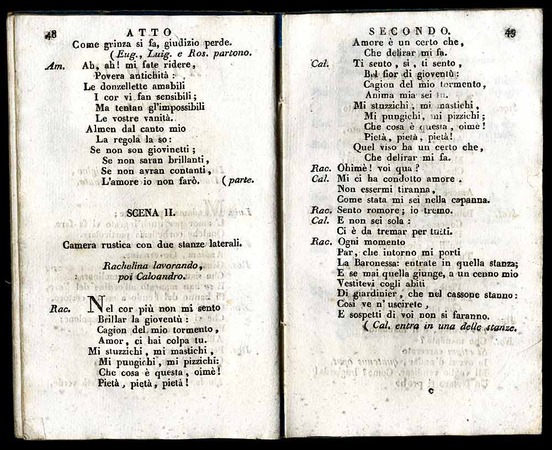 48 ATTO
Come grinza si fa, giudizio perde.
(Eug., Luig. e Ros. partono.
Am. Ah, ah! mi fate ridere,
Povera antichità:
Le donzellette amabili
I cor vi fan sensibili;
Ma tentan gl'impossibili
Le vostre vanità.
Almen dal canto mio
La regola la so:
Se non son giovinetti;
Se non saran brillanti,
Se non avran contanti,
L'amore io non farò. (parte.
SCENA II.
Camera rustica con due stanze laterali.
Rachelina lavorando,
poi Caloandro.
Rac. Nel cor più non mi sento
Brillar la gioventù:
Cagion del mio tormento,
Amor, ci hai colpa tu.
Mi stuzzichi, mi mastichi,
Mi pungichi, mi pizzichi:
Che cosa è questa, oimè!
Pietà, pietà, pietà!
SECONDO. 49
Amore è un certo che,
Che delirar mi fa.
Cal. Ti sento, sì, ti sento,
Bel fior di gioventù:
Cagion del mio tormento,
Anima mia sei tu.
Mi stuzzichi, mi mastichi,
Mi pungichi, mi pizzichi;
Che cosa è questa, oimè!
Pietà, pietà, pietà!
Quel viso ha un certo che,
Che delirar mi fa.
Rac. Ohimè! voi qua?
Cal. Mi ci ha condotto amore.
Non essermi tiranna,
Come stata mi sei nella capanna.
Rac. Sento romore; io tremo.
Cal. E non sei sola:
Ci è da tremar per tutti.
Rac. Ogni momento
Par, che intorno mi porti
La Baronessa: entrate in quella stanza;
E se mai quella giunge, a un cenno mio
Vestitevi cogli abiti
Di giardinier, che nel cassone stanno:
Così ve n'uscirete,
E sospetti di voi non si faranno.
(Cal. entra in una delle stanze.
c